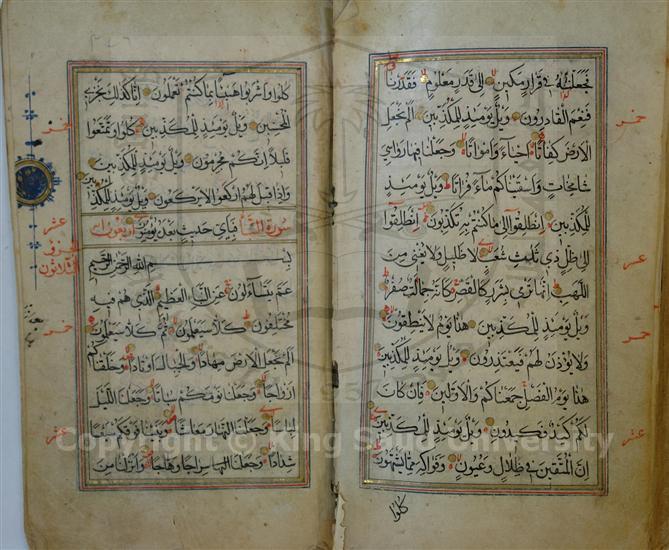 فجعلنه في قرار مكين الى قدر معلوم فقدرنا
فنعم القادرون ويل يومئذ للمكذبين الم نجعل
الارض كفاتا احياء وامواتا وجعلنا فيها رواسي
شامخات واسقيناكم ماء فراتا ويل يومئذ
للمكذبين انطلقوا الى ما كنتم به تكذبون انطلقوا
الى ظل ذي ثلث شعب لا ظليل ولا يغني من
اللهب انها ترمي بشرر كالقصر كانه جمالت صفر
ويل يومئذ للمكذبين هذا يوم لا ينطقون
ولا يؤذن لهم فيعتذرون ويل يومئذ للمكذبين
هذا يوم الفصل جمعناكم والاولين فان كان
لكم كيد فكيدون ويل يومئذ للمكذبين
ان المتقين في ظلال وعيون وفواكه مما يشتهون
كلوا
خمر
عشر
خمر
عشر
كلوا واشربوا هنيئا بما كنتم تعملون انا كذلك نجزي
المحسنين ويل يومئذ للمكذبين كلوا وتمتعوا
قليلا انكم مجرمون ويل يومئذ للمكذبين
واذا قيل لهم اركعوا لا يركعون ويل يومئذ للمكذبين
فباي حديث بعده يؤمنون
سورة النبأ اربعون اية
بسم الله الرحمن الرحيم
عم يتساءلون عن النبا العظيم الذي هم فيه
مختلفون كلا سيعلمون ثم كلا سيعلمون
الم نجعل الارض مهادا والجبال اوتادا وخلقناكم
ازواجا وجعلنا نومكم سباتا وجعلنا الليل
لباسا وجعلنا النهار معاشا وبنينا فوقكم سبعا
شدادا وجعلنا سراجا وهاجا وانزلنا من
خمر
عشر
الجزو
الثلاثون
خمر
عشر
Copyright © King Saud University
1957